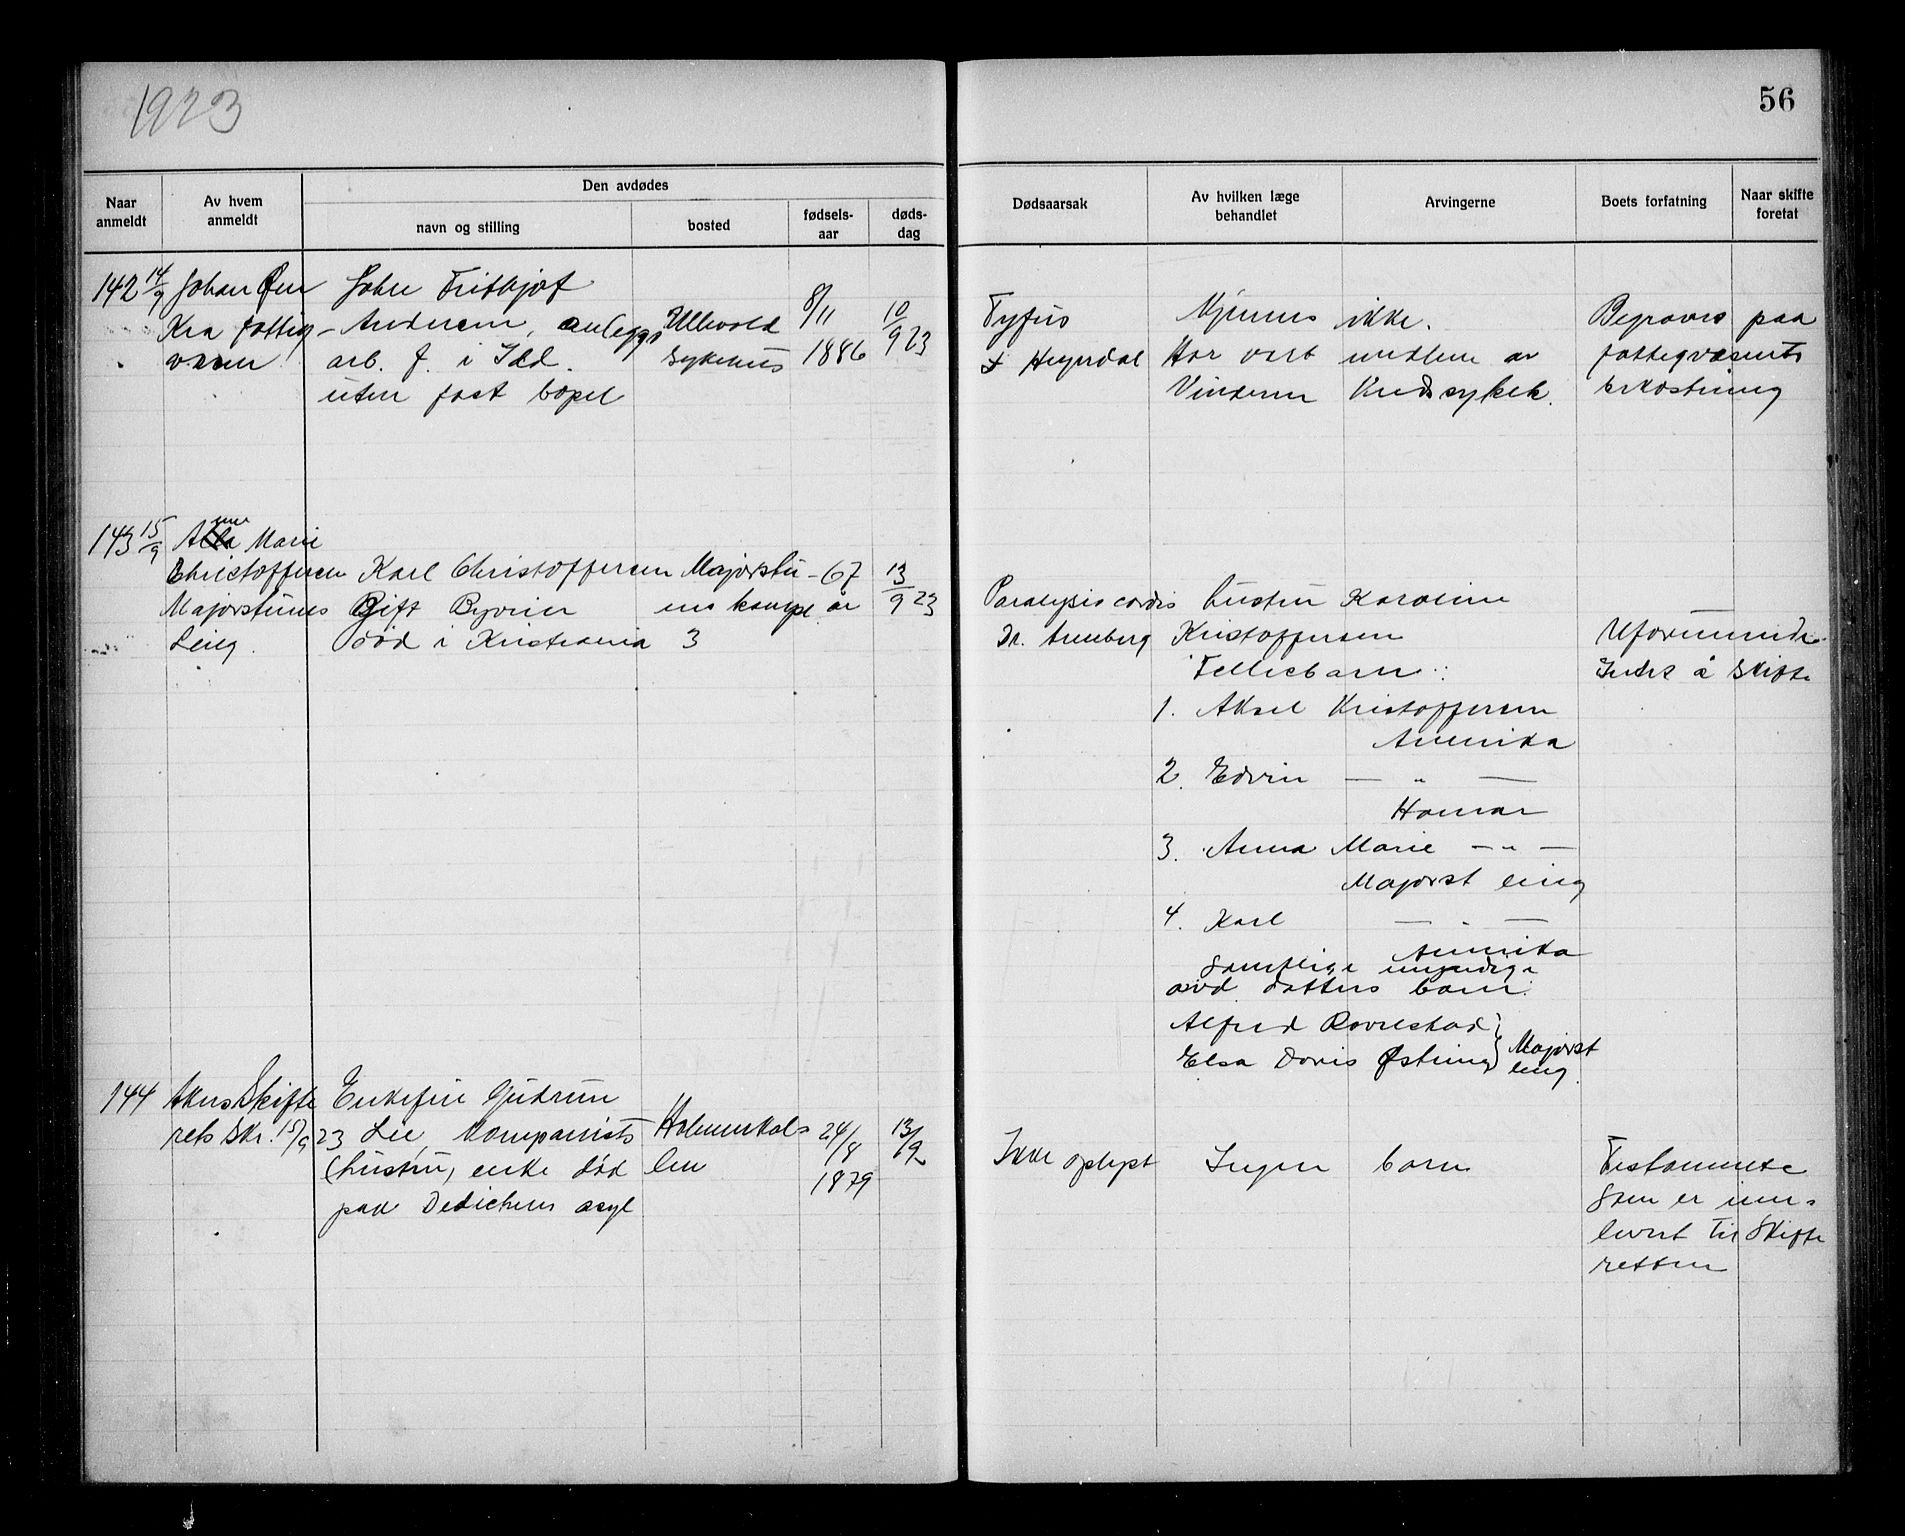 1923
56
Naar anmeldt
Av hvem anmeldt
Den avdødes
navn og stilling
bosted
fødsels-aar
døds-dag
Dødsaarsak
Av hvilken læge behandlet
Arvingerne
Boets forfatning
Naar skifte foretat
142 14/9 Johan Øen
Kra fattig
væsen
John Frithjof
Andersen, anleggs
arb. f. i Idd.
uten fast bopel
Ullevold
sykehus
8/11
1886
10/9 23
Tyfus
Heyerdal
Kjennes ikke.
Har vært medlem av
Vinderen Kredssykek.
Begraves paa
fattigvæsenets
bekostning
143 15/9 Anna Marie
Christoffersen
Majorstuens
Leieg.
Karl Christoffersen
Gift Byvier
død i Kristiania
Majorstu-
ens kompl.
3
67
år
13/9 23
Paralysis cordis
Dr. Arenberg
hustru Karoline
Kristoffersen
Fellesbarn:
1. Aksel Kristoffersen
Amerika
2. Edvin — " —
Hamar
3. Anna Marie — " —
Majorst leieg
4. Karl — " —
Amerika
samtlige myndige
avd datters barn:
Alfred Rovelstad
Elsa Doris Østeng } Majorst leieg.
Uformuende
Intet å skifte
144 Akers Skifte
rets Skr. 15/9 23
Enkefru Gudrun
Lie, Komponists
hustru, enke død
paa Dedichens asyl
Holmenkol-
len
24/8
1879
13/9
Ikke oplyst
Ingen barn
Testamente
som er inn-
levert til Skifte
retten